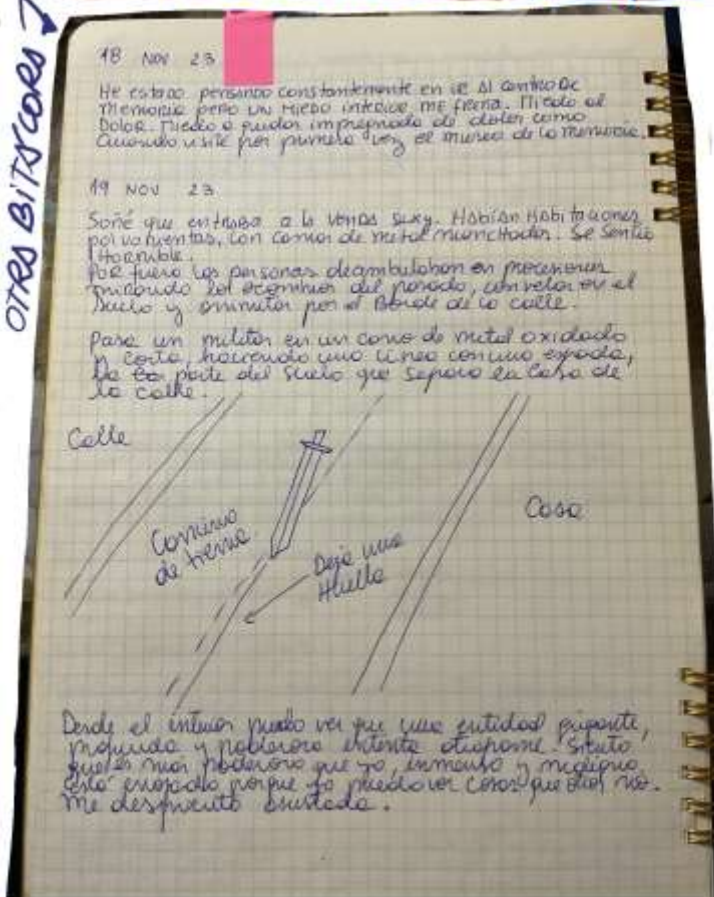 OTRA BITACORA
18 NOV 23
He estado pensando constantemente en ir al centro de
memoria pero un miedo interior me frena. Miedo al
Dolor. Miedo a quedar impregnada de dolor como
cuando visité por primera vez el museo de la memoria.
19 NOV 23
Soñé que entraba a la venda sexy. Habían Habitaciones
con camas de metal manchadas. Se sentía
Horrible.
Por fuera las personas deambulaban en procesiones
mirando los escombros del pasado, con velas en el
suelo y por el Borde de la calle.
Pasa un militar en un carro de metal oxidado
y corta, haciendo una línea con una espada,
la parte del suelo que separa la casa de
la calle.
Calle
Camino
de tierra
Deja una
Huella
Casa
Desde el interior puedo ver que una entidad gigante,
profunda y poderosa intenta atraparme. Siento
que es más poderoso que yo, inmenso y maligno
está enojado porque yo puedo ver cosas que ellos no.
Me despierto asustada.